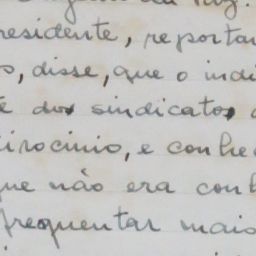 residente, reportan
s, disse, que o indi
e dos sindicatos
irocinio, e conhe
que não era conh
frequentar mais